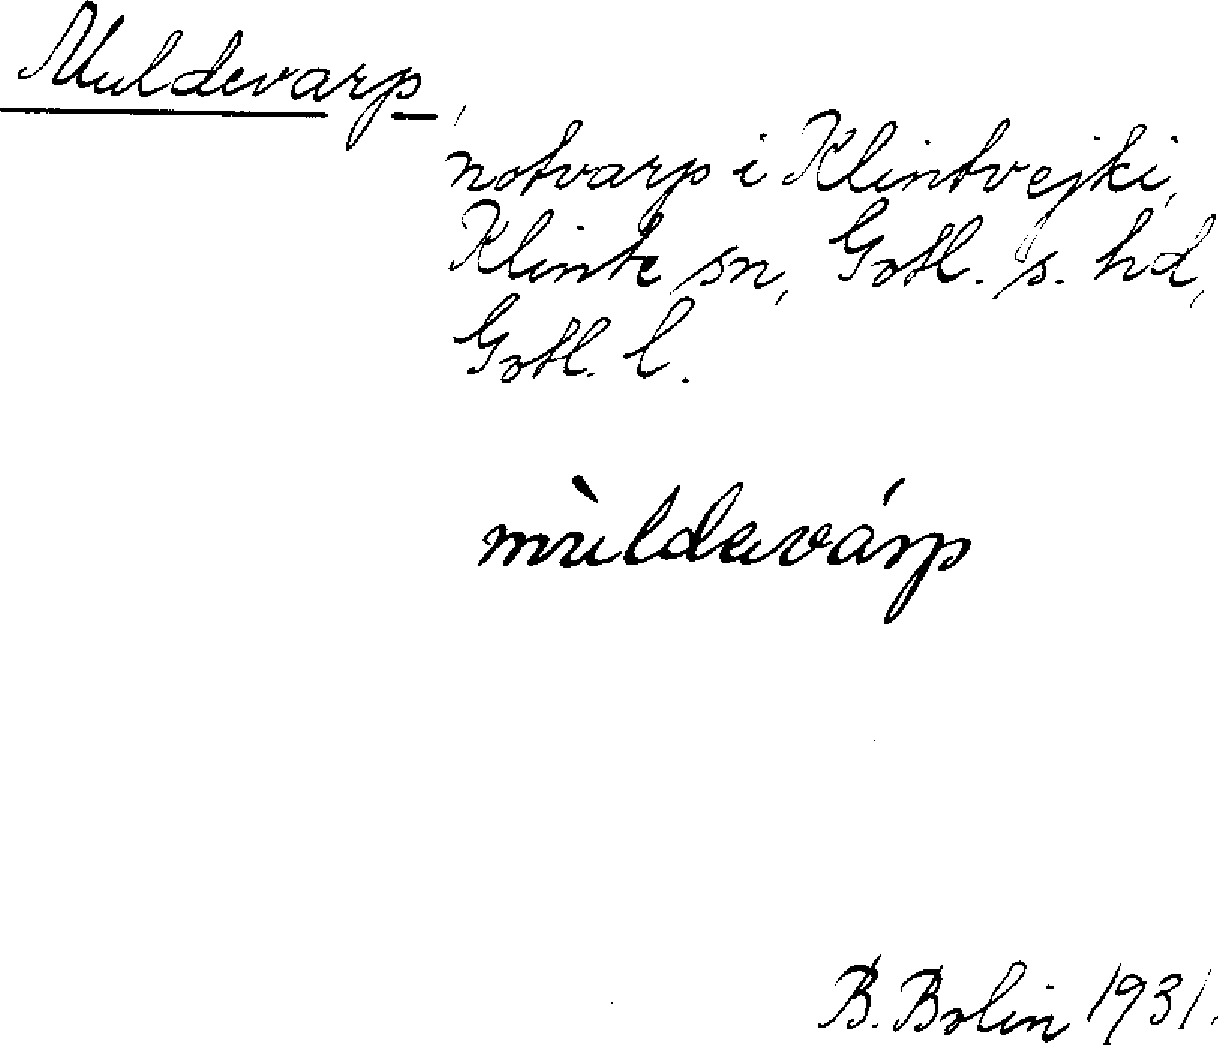 Muldevarp,
notvarp i Klintvejki,
Klinte sn, Gotl. s. hd,
Gotl. l.
mùldavárp
B. Bolin 1931.